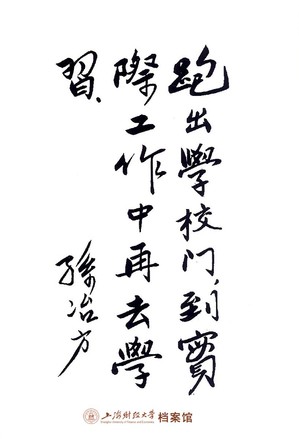 跑出學校門，到實
際工作中再去學
習、
孫冶方
上海财经大学 档案馆
Shanghai University of Finance and Economics